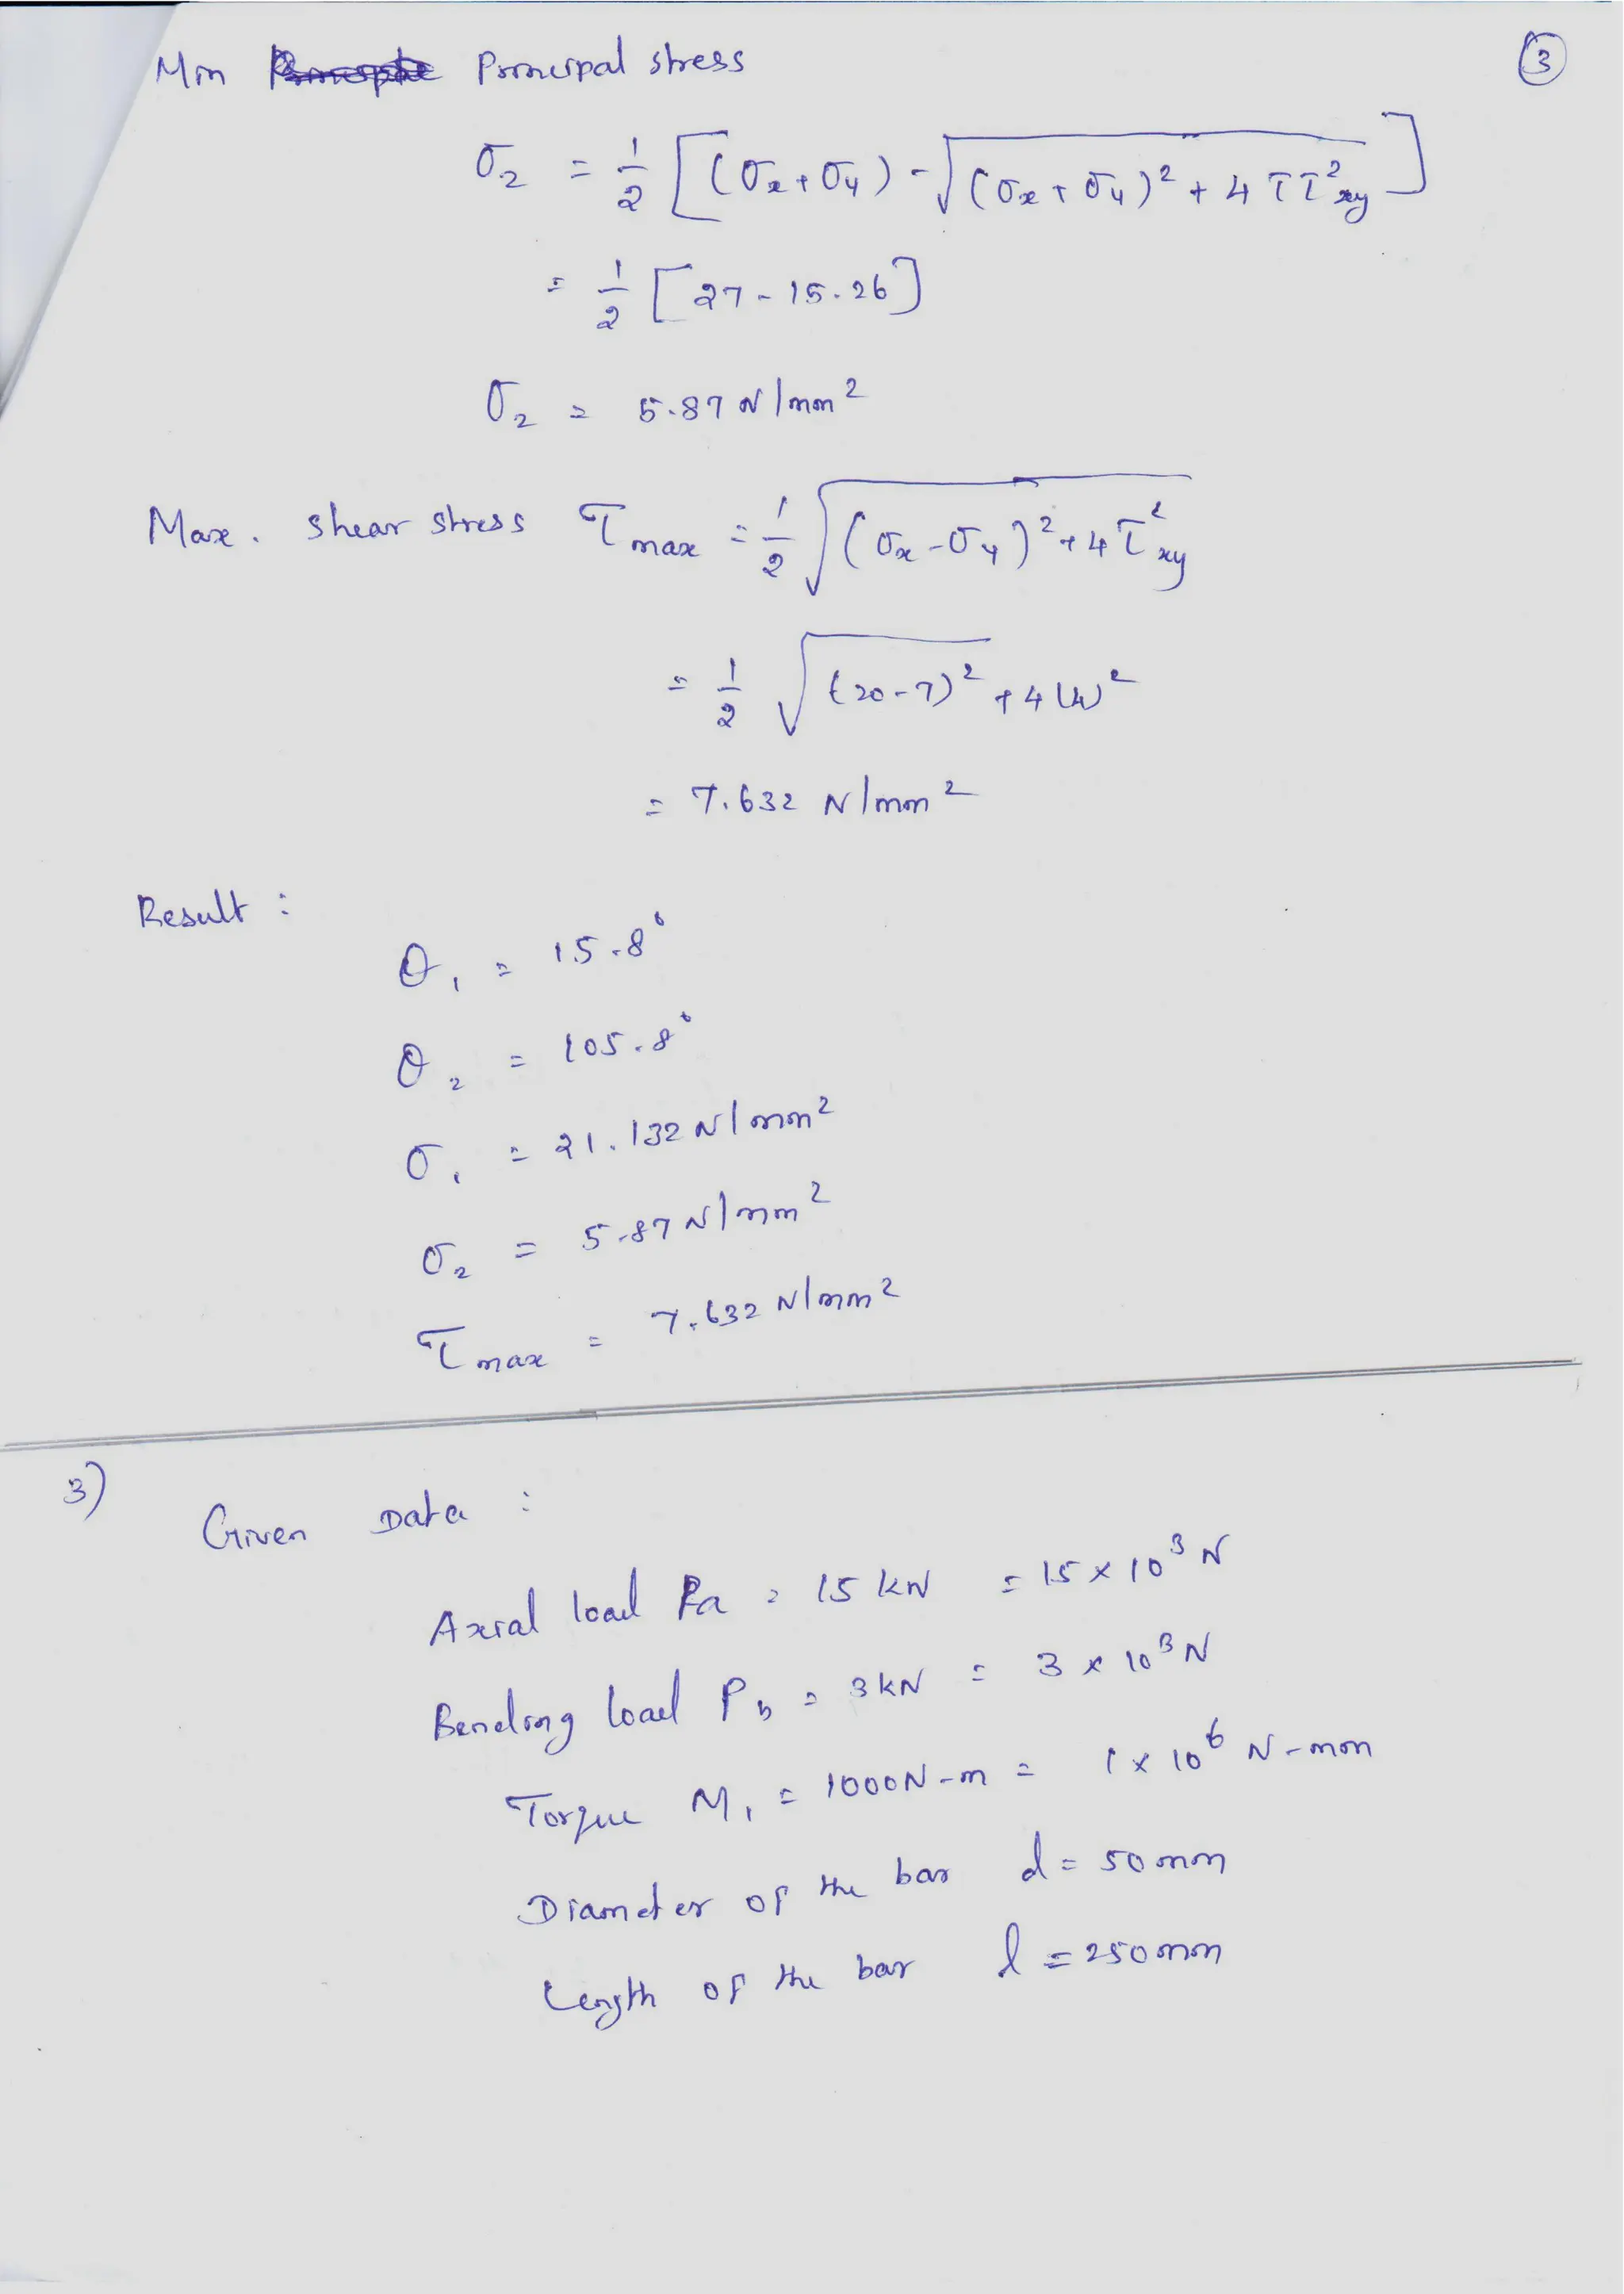 ③
Min Principal stress
σ2 = 1/2 [(σx + σy) - √(σx + σy)² + 4 τ τ²xy]
= 1/2 [27 - 15.26]
σ2 = 5.87 N/mm²
Max. shear stress τmax = 1/2 √(σx - σy)² + 4 τ²xy
= 1/2 √(20-7)² + 4(4)²
= 7.632 N/mm²
Result :
θ1 = 15.8°
θ2 = 105.8°
σ1 = 21.132 N/mm²
σ2 = 5.87 N/mm²
τmax = 7.632 N/mm²
3)
Given Data :
Axial load Pa = 15 kN = 15 × 10³ N
Bending load Pb = 3 kN = 3 × 10³ N
Torque M1 = 1000 N-m = 1 × 10⁶ N-mm
Diameter of the bar d = 50 mm
Length of the bar l = 250 mm